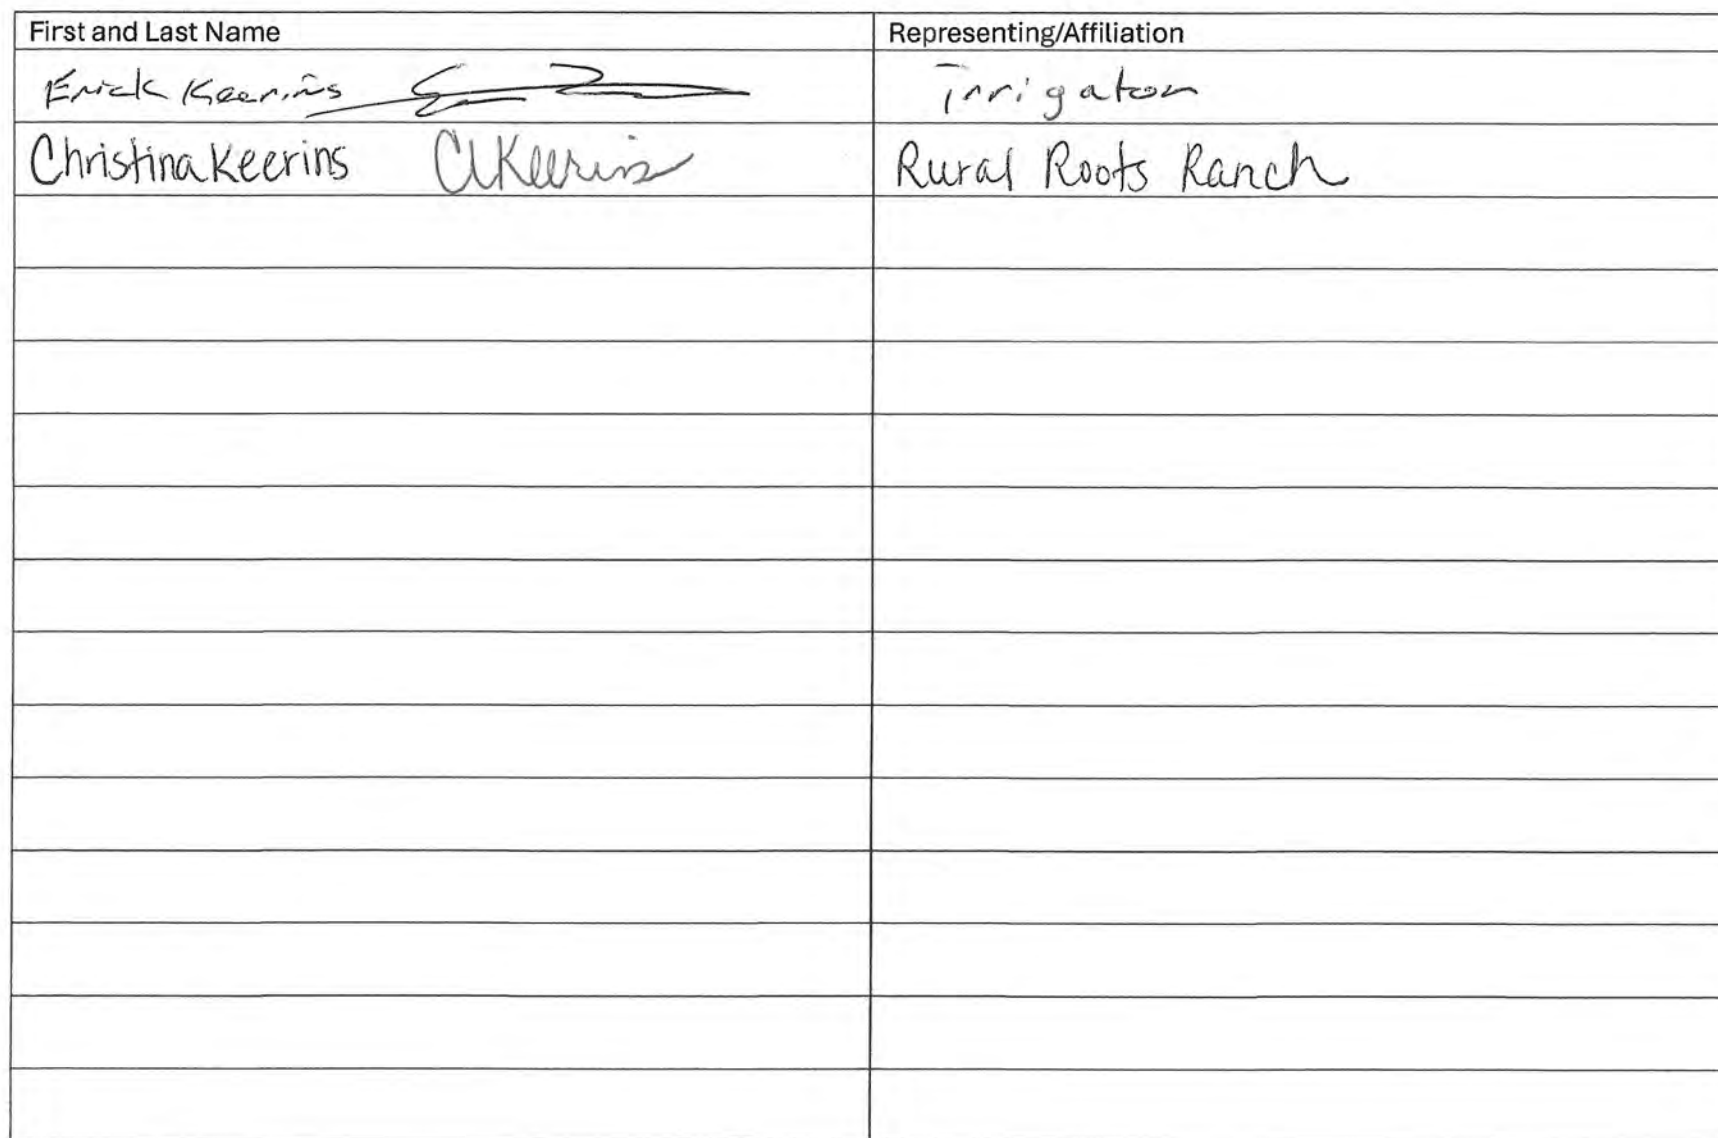 First and Last Name Representing/Affiliation
Erick Keerins Irrigator
Christina Keerins CKeerins Rural Roots Ranch